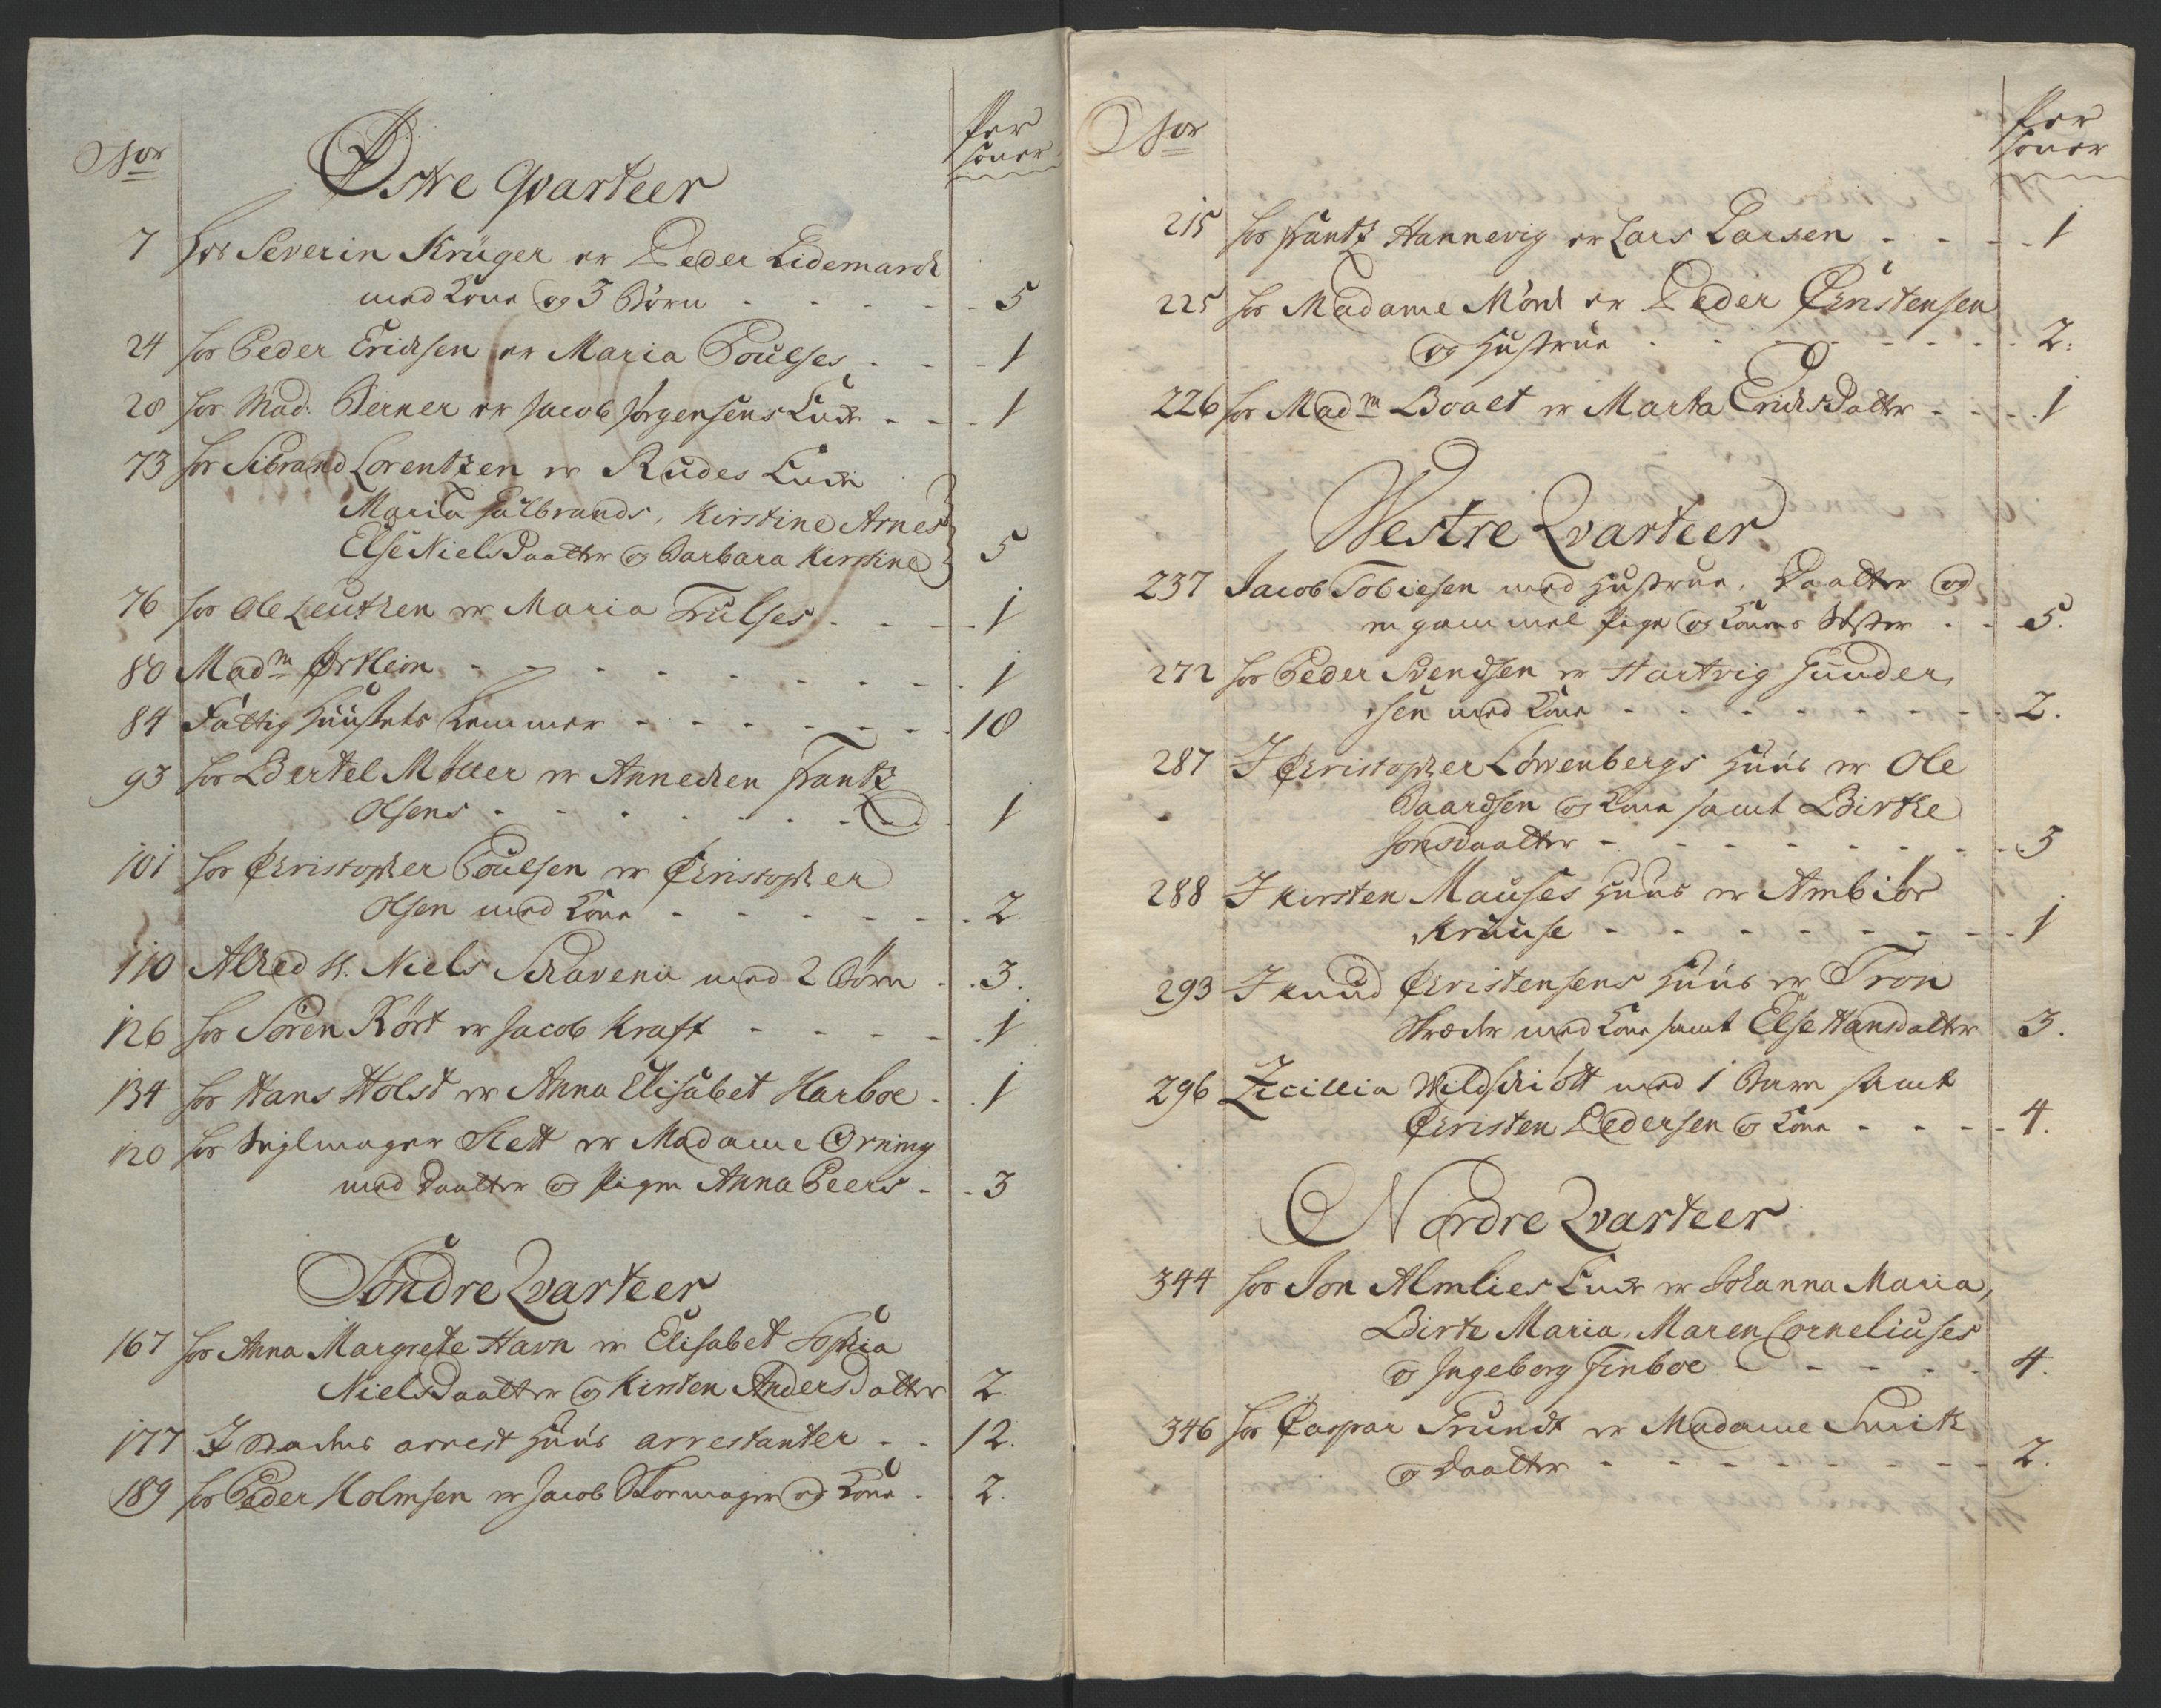 No
Personer
Østre Qvarteer
7 Hos Severin Krüger er Peder Lidemark
med Kone og 3 Børn - - - - 5
24 hos Peder Erichsen er Maria Poulses - - 1
28 hos Mad: Berner er Jacob Jørgensens Enke - - 1
73 hos Sibrand Lorentzen er Rudes Enke
Maria Gulbrands, Kirstine Arnes
Else Nielsdaatter og Barbara Kirstine 5
76 hos Ole Leutzen er Maria Trulses - - - 1
80 Madm Ørtlein - - - - - - 1
84 Fattig Huusets Lemmer - - - - - 10
93 hos Bertel Møller er Annechen Frantz
Olsens - - - - - - 1
101 hos Christopher Poulsen er Christopher
Olsen med Kone - - - - - 2.
110 Afled H. Niels Schavenii med 2 Børn - 3.
126 hos Søren Kört er Jacob Kraft - - - - 1
134 hos Hans Holst er Anna Elisabet Harboe - 1
120 hos Sejlmager Slett er Madame Ørning
med Daatter og Pigen Anna Peers - 3
Søndre Qvarteer
167 hos Anna Margrete Havn er Elisabet Sophia
Nielsdaatter og Kirsten Andersdatter 2.
177 I Stadens arrest Huus arrestanter - - 12.
189 hos Peder Holmsen er Jacob Skomager og Kone - 2.
No
Personer
215 hos Frantz Hannevig er Lars Larsen - - - 1
225 hos Madame Mörch er Peder Christensen
og Hustrue - - - - - 2.
226 hos Madm Boalt er Marta Erichsdatter - - - 1
Westre Qvarteer
237 Jacob Tobiesen med Hustrue, Daatter og
en gammel Pige og Konens Søster - - 5.
272 hos Peder Svendsen er Hartvig Gunder,
sen med Kone - - - - - - 2.
287 I Christopher Löwenbergs Huus er Ole
Baardsen og Kone samt Birthe
Jonsdaatter - - - - - - 3
288 I Kirsten Mauses Huus er Ambiør
Kruuse - - - - - - 1
293 I Knud Christensens Huus er Tron
Skræder med Kone samt Else Hansdatter 3.
296 Zicillia Wildschiött med 1 Barn samt
Christen Pedersen og Kone - - - - 4.
Nordre Qvarteer
344 hos Jon Almlies Enke er Johanna Maria,
Birte Maria, Maren Corneliuses
og Ingeborg Finboe - - - - 4.
346 hos Caspar Trundt er Madame Smith
og Daatter - - - - - - 2.